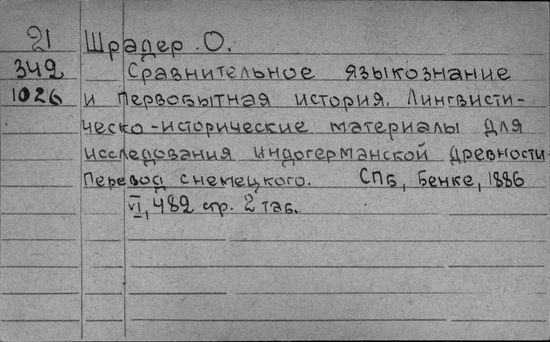 21 Шрадер О.
349 Сравнительное языкознание
1026 и первобытная история. Лингвисти-
ческо-исторические материалы для
исследования индогерманской древности
Перевод снемецкого. СПб, Бенке, 1886
VI, 482 стр. 2 таб.